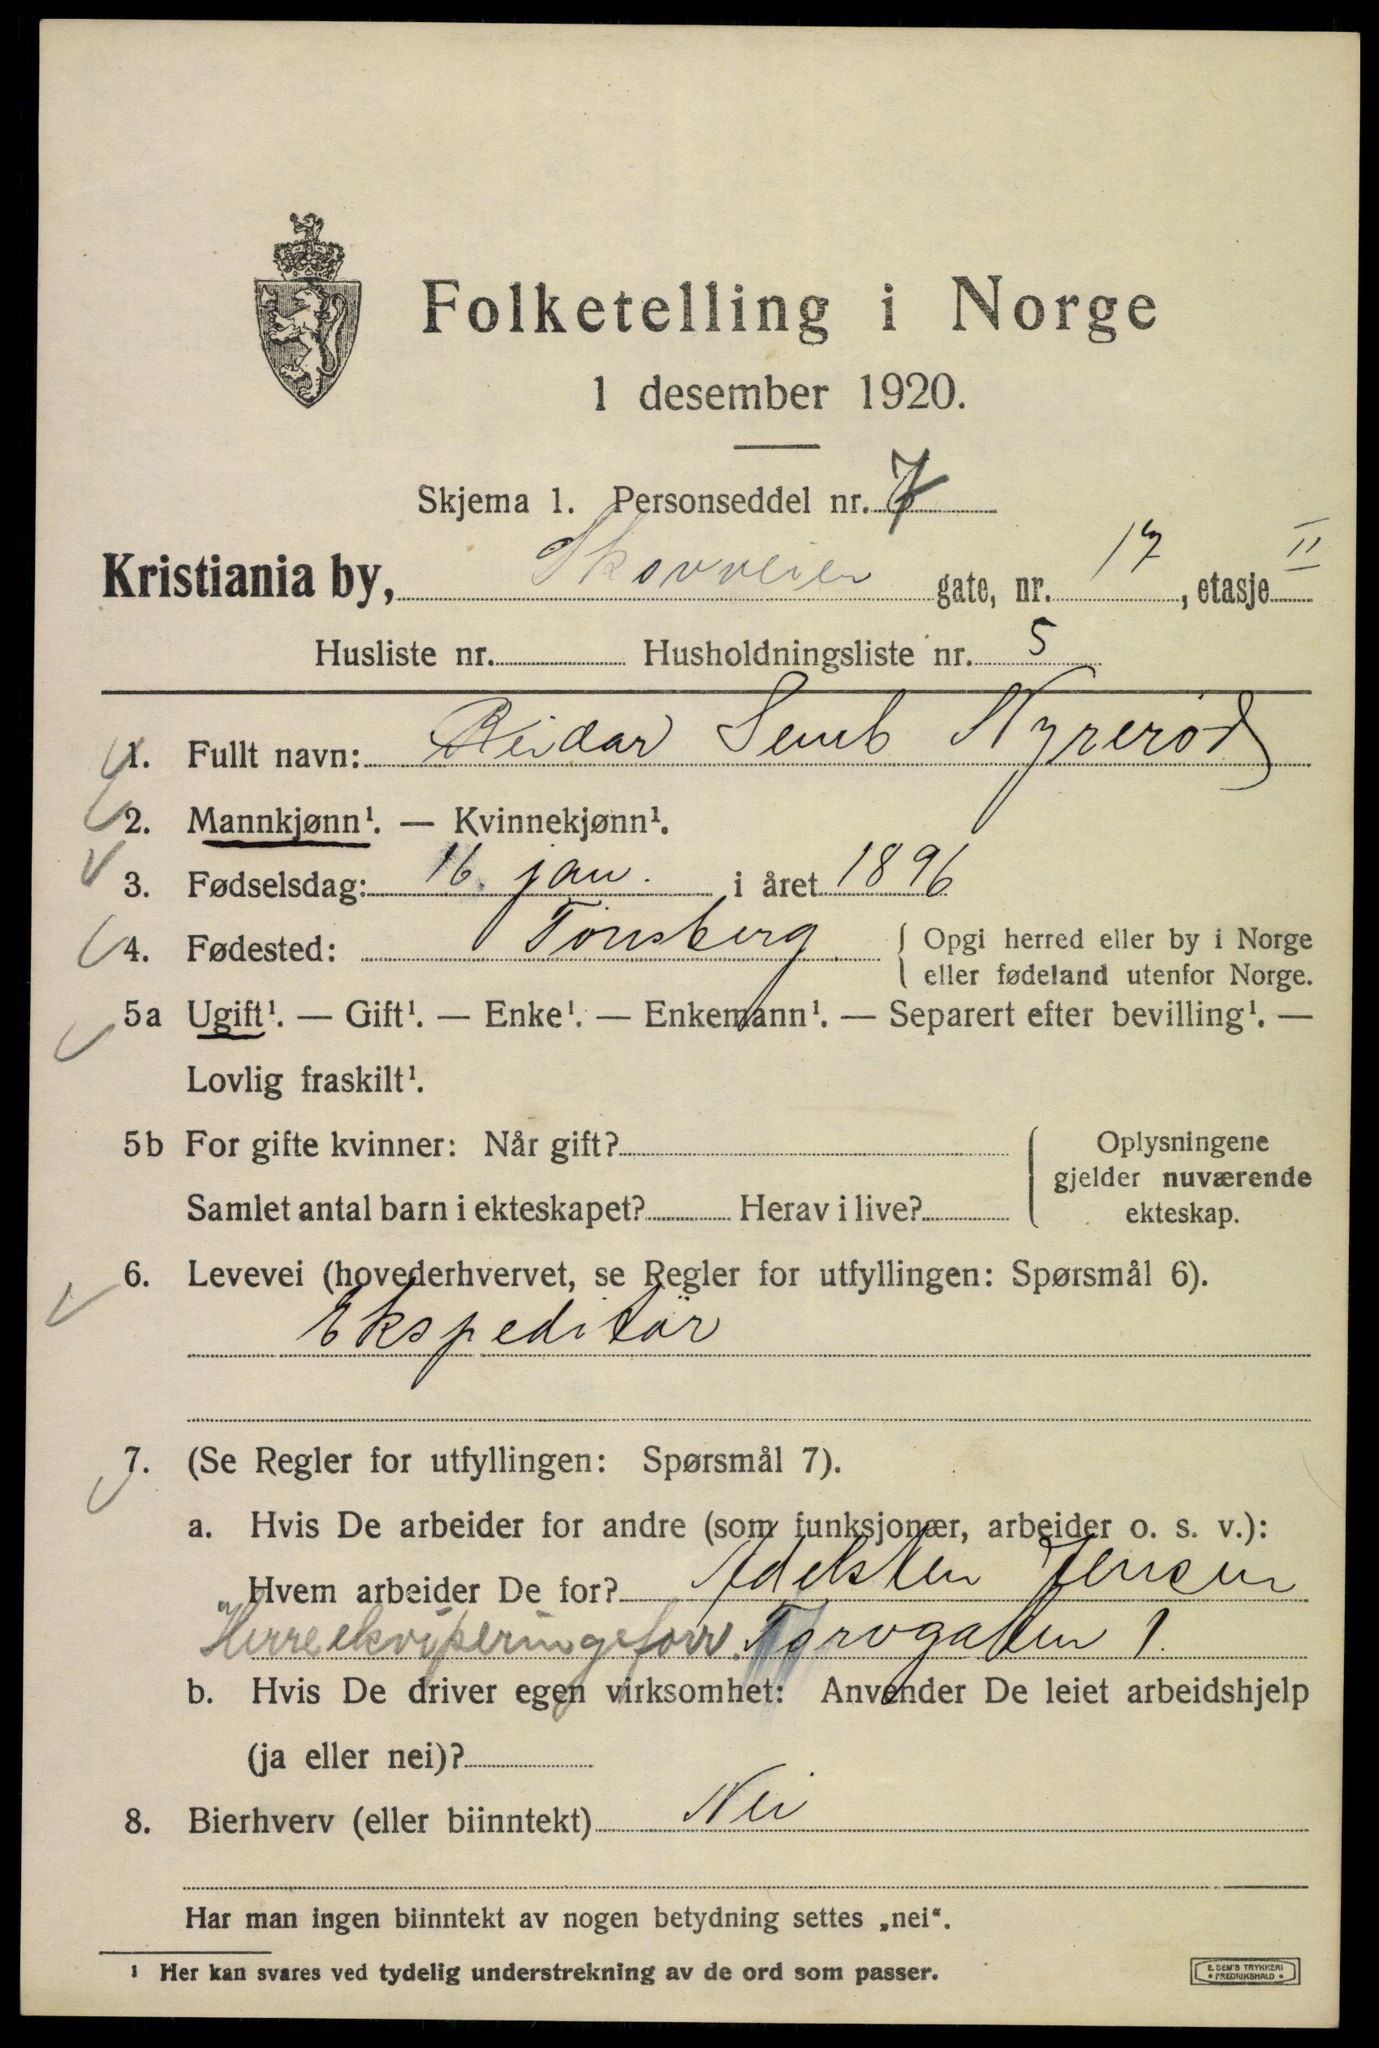 Folketelling i Norge
1 desember 1920.
Skjema 1. Personseddel nr. 7
Kristiania by, Skovveien gate, nr. 17, etasje II
Husliste nr. Husholdningsliste nr. 5
1. Fullt navn: Reidar Semb Nyrerød
2. Mannkjønn¹. — Kvinnekjønn¹.
3. Fødselsdag: 16. jan. i året 1896
4. Fødested: Tønsberg { Opgi herred eller by i Norge
eller fødeland utenfor Norge.
5a Ugift¹. — Gift¹. — Enke¹. — Enkemann¹. — Separert efter bevilling¹. —
Lovlig fraskilt¹.
5b For gifte kvinner: Når gift? { Oplysningene
gjelder nuværende
Samlet antal barn i ekteskapet? Herav i live? ekteskap.
6. Levevei (hovederhvervet, se Regler for utfyllingen: Spørsmål 6).
Ekspeditør
7. (Se Regler for utfyllingen: Spørsmål 7).
a. Hvis De arbeider for andre (som funksjonær, arbeider o. s. v.):
Hvem arbeider De for? Adelsten Jensen
Herreekviperingsforr. Torvgaten 1.
b. Hvis De driver egen virksomhet: Anvender De leiet arbeidshjelp
(ja eller nei)?
8. Bierhverv (eller biinntekt) Nei
Har man ingen biinntekt av nogen betydning settes „nei“.
¹ Her kan svares ved tydelig understrekning av de ord som passer.
E. SEM'S TRYKKERI
• FREDRIKSHALD •